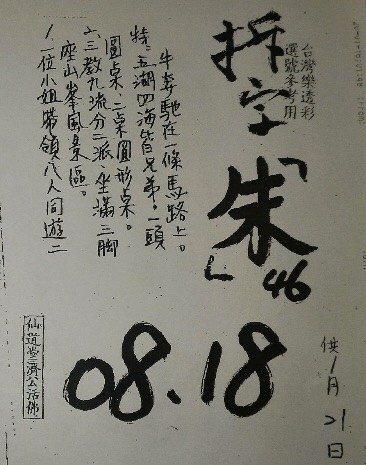 台灣樂透彩
選號參考用
拆字「朱」46
1、一位小姐帶領八人同遊二
座山峯風景區。
2、三教九流分二派、坐滿三脚
圓桌、二桌圓形桌。
特、五湖四海皆兄弟。一頭
牛奔馳在一條馬路上。
08.18
供1月21日
仙道堂三濟公活佛